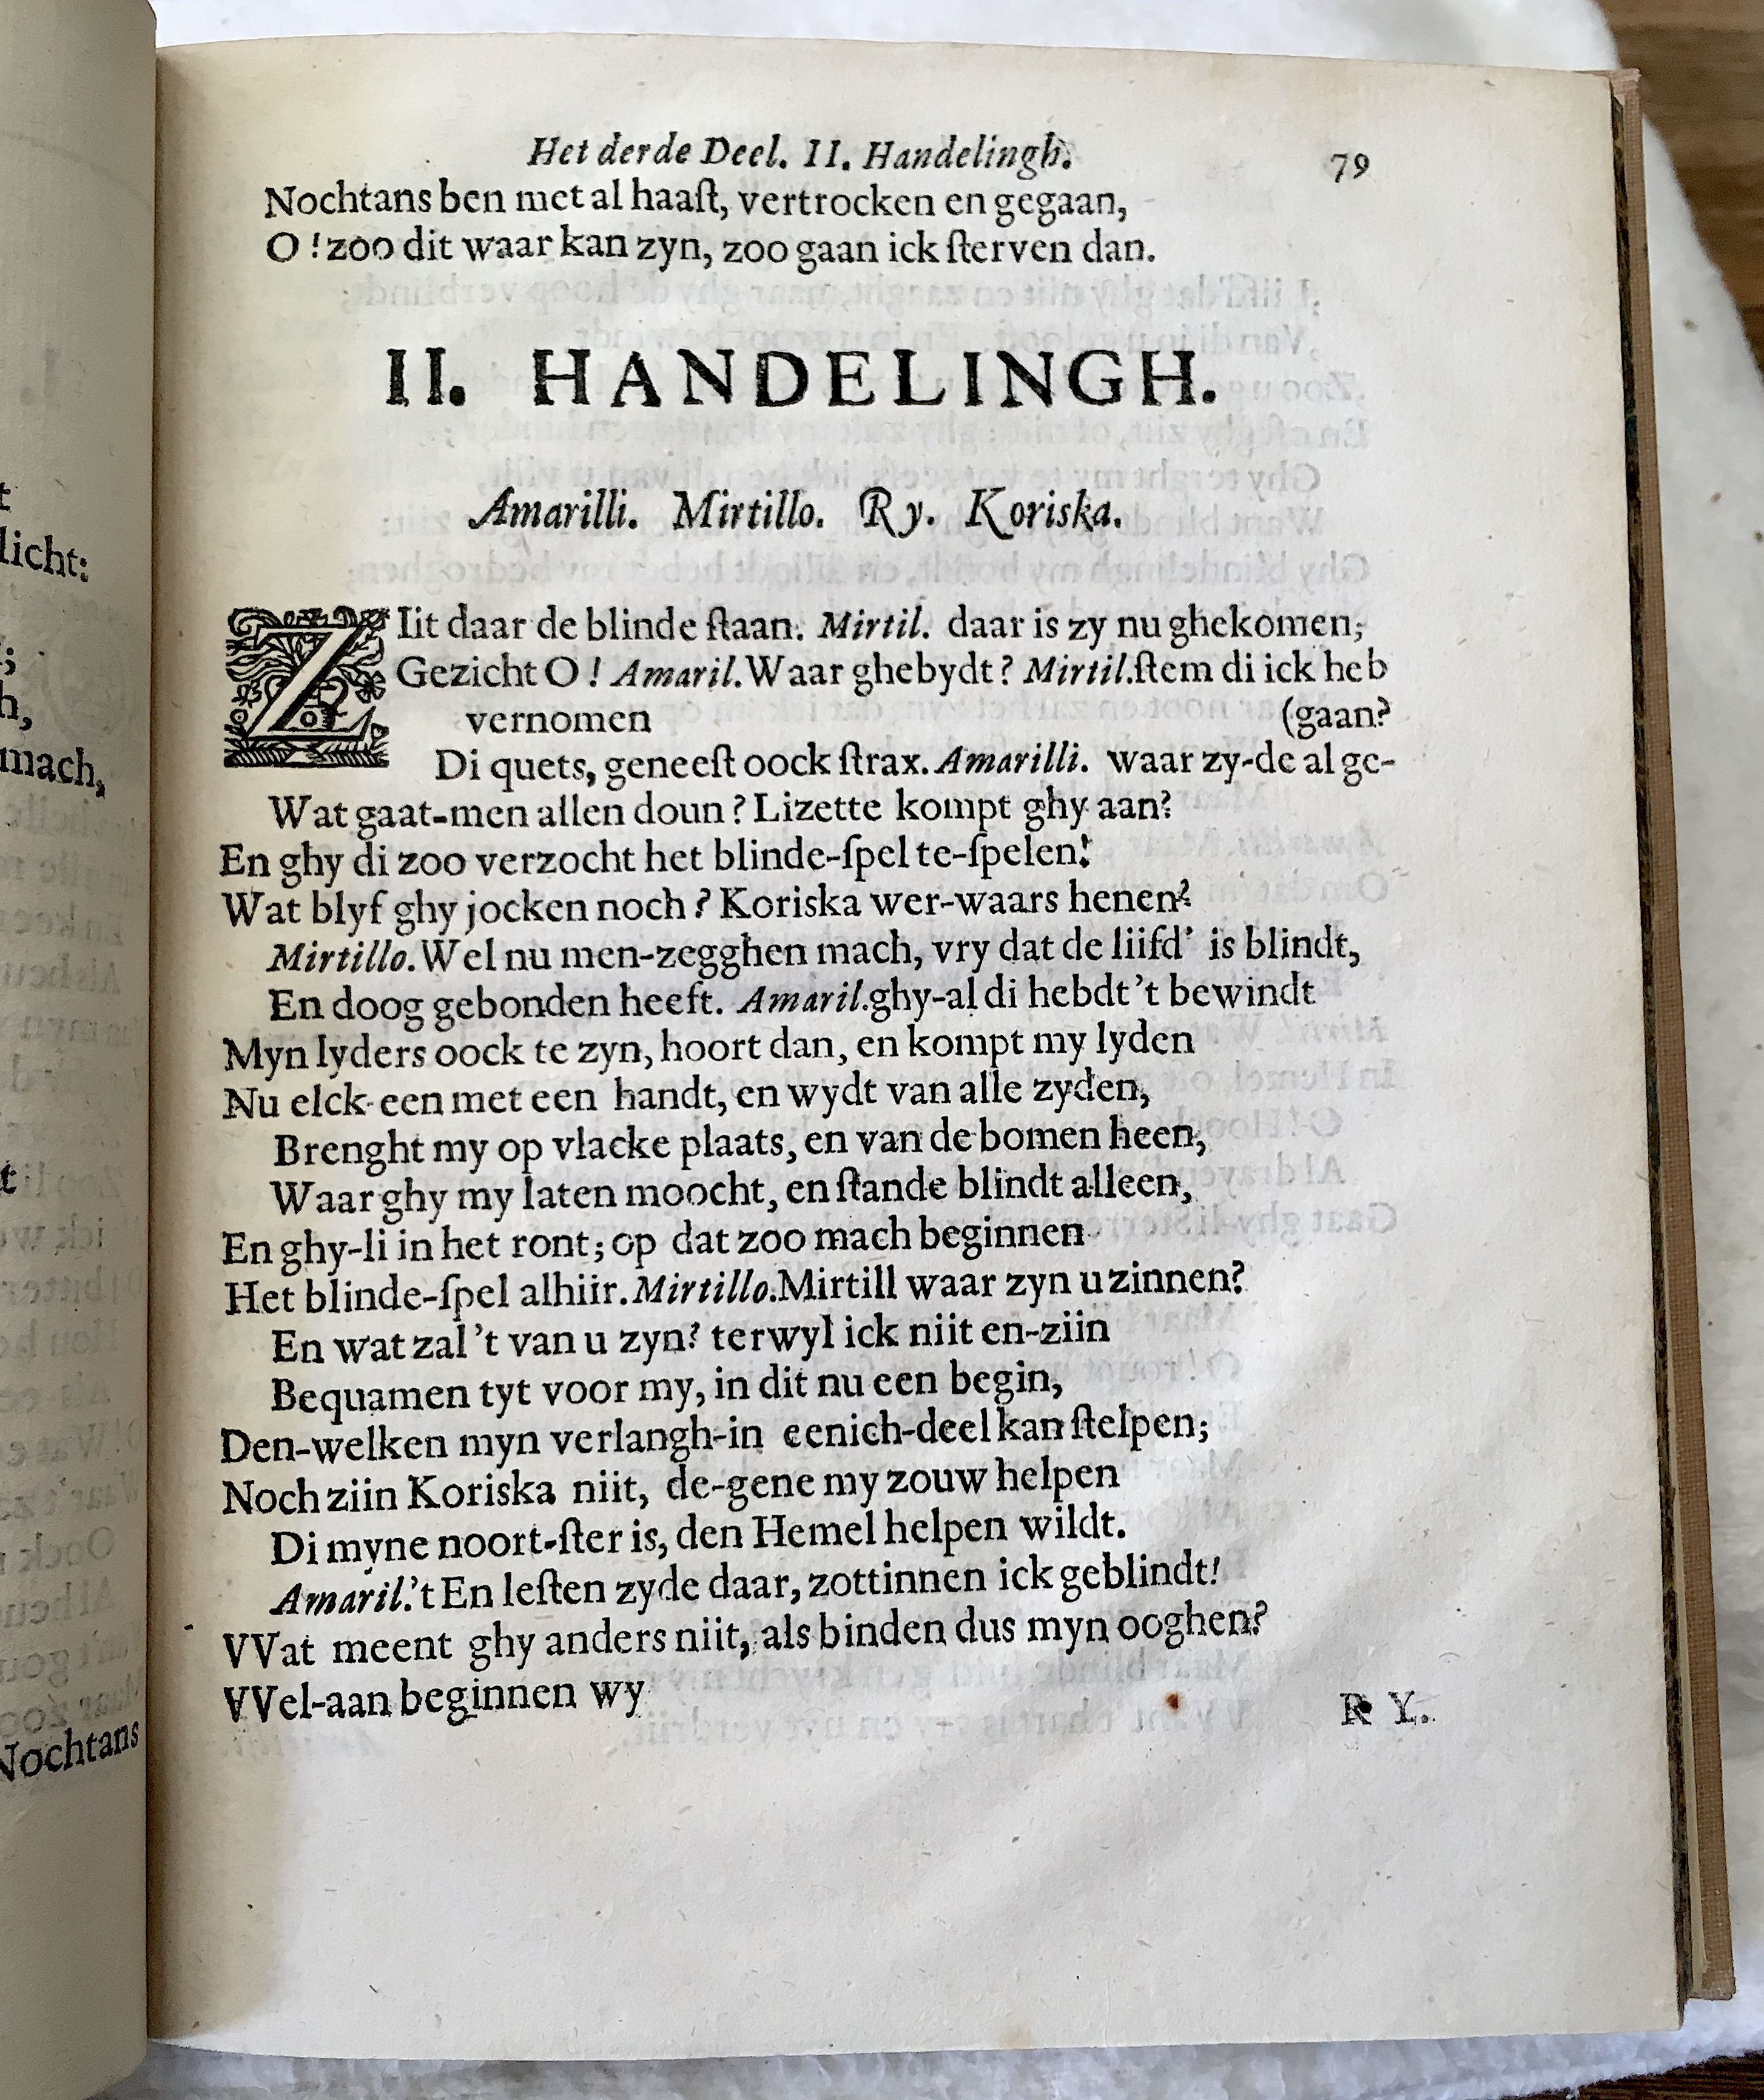 t
licht:
;
h,
mach,
t
Nochtans
Het derde Deel. II. Handelingh. 79
Nochtans ben met al haaſt, vertrocken en gegaan,
O! zoo dit waar kan zyn, zoo gaan ick ſterven dan.
II. HANDELINGH.
Amarilli. Mirtillo. Ry. Koriska.
ZIit daar de blinde ſtaan. Mirtil. daar is zy nu ghekomen;
Gezicht O! Amaril. Waar ghebydt? Mirtil. ſtem di ick heb
vernomen (gaan?
Di quets, geneeſt oock ſtrax. Amarilli. waar zy-de al ge-
Wat gaat-men allen doun? Lizette kompt ghy aan?
En ghy di zoo verzocht het blinde-ſpel te-ſpelen!
Wat blyf ghy jocken noch? Koriska wer-waars henen?
Mirtillo. Wel nu men-zegghen mach, vry dat de liifd' is blindt,
En doog gebonden heeft. Amaril. ghy-al di hebdt 't bewindt
Myn lyders oock te zyn, hoort dan, en kompt my lyden
Nu elck een met een handt, en wydt van alle zyden,
Brenght my op vlacke plaats, en van de bomen heen,
Waar ghy my laten moocht, en ſtande blindt alleen,
En ghy-li in het ront; op dat zoo mach beginnen
Het blinde-ſpel alhiir. Mirtillo. Mirtill waar zyn u zinnen?
En wat zal 't van u zyn? terwyl ick niit en-ziin
Bequamen tyt voor my, in dit nu een begin,
Den-welken myn verlangh-in eenich-deel kan ſtelpen;
Noch ziin Koriska niit, de-gene my zouw helpen
Di myne noort-ſter is, den Hemel helpen wildt.
Amaril. 't En leſten zyde daar, zottinnen ick geblindt!
VVat meent ghy anders niit, als binden dus myn ooghen?
VVel-aan beginnen wy
RY.